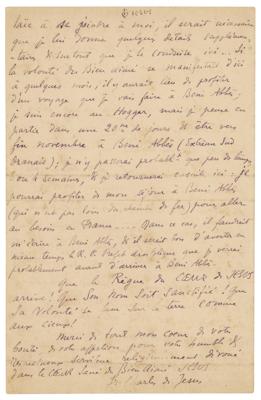 JESUS
laïc à se joindre à moi, il serait nécessaire
que je lui donne quelques détails supplémen-
taires & surtout que je le conduise ici. Si
la volonté du Bien aimé se manifestait d'ici
à quelques mois, il y aurait lieu de profiter
d'un voyage que je vais faire à Beni Abbès,
je suis encore au Hoggar, mais je pense en
partir dans une 20ne de jours & être vers
fin novembre à Beni Abbès (Extrême Sud
Oranais); je n'y passerai probablt que peu de temps,
ou 4 semaines, & je retournerai ensuite ici. Je
pourrai profiter de mon séjour à Beni Abbès
(qui n'est pas loin du chemin de fer) pour aller
au besoin en France. Dans ce cas, il faudrait
m'écrire à Beni Abbès, & il serait bon d'avertir en
même temps le R. P. Préfet apostolique que je verrai
probablement avant d'arriver à Beni Abbès.
Que le Règne du CŒUR de JESUS
arrive! Que Son Nom Soit Sanctifié! Que
Sa Volonté se fasse sur la terre comme
aux cieux!
Merci de tout mon cœur de votre
bonté, de votre affection pour votre humble &
serviteur religieusement dévoué
dans le CŒUR Sacré du Bien aimé JESUS
fr. Charles de Jesus